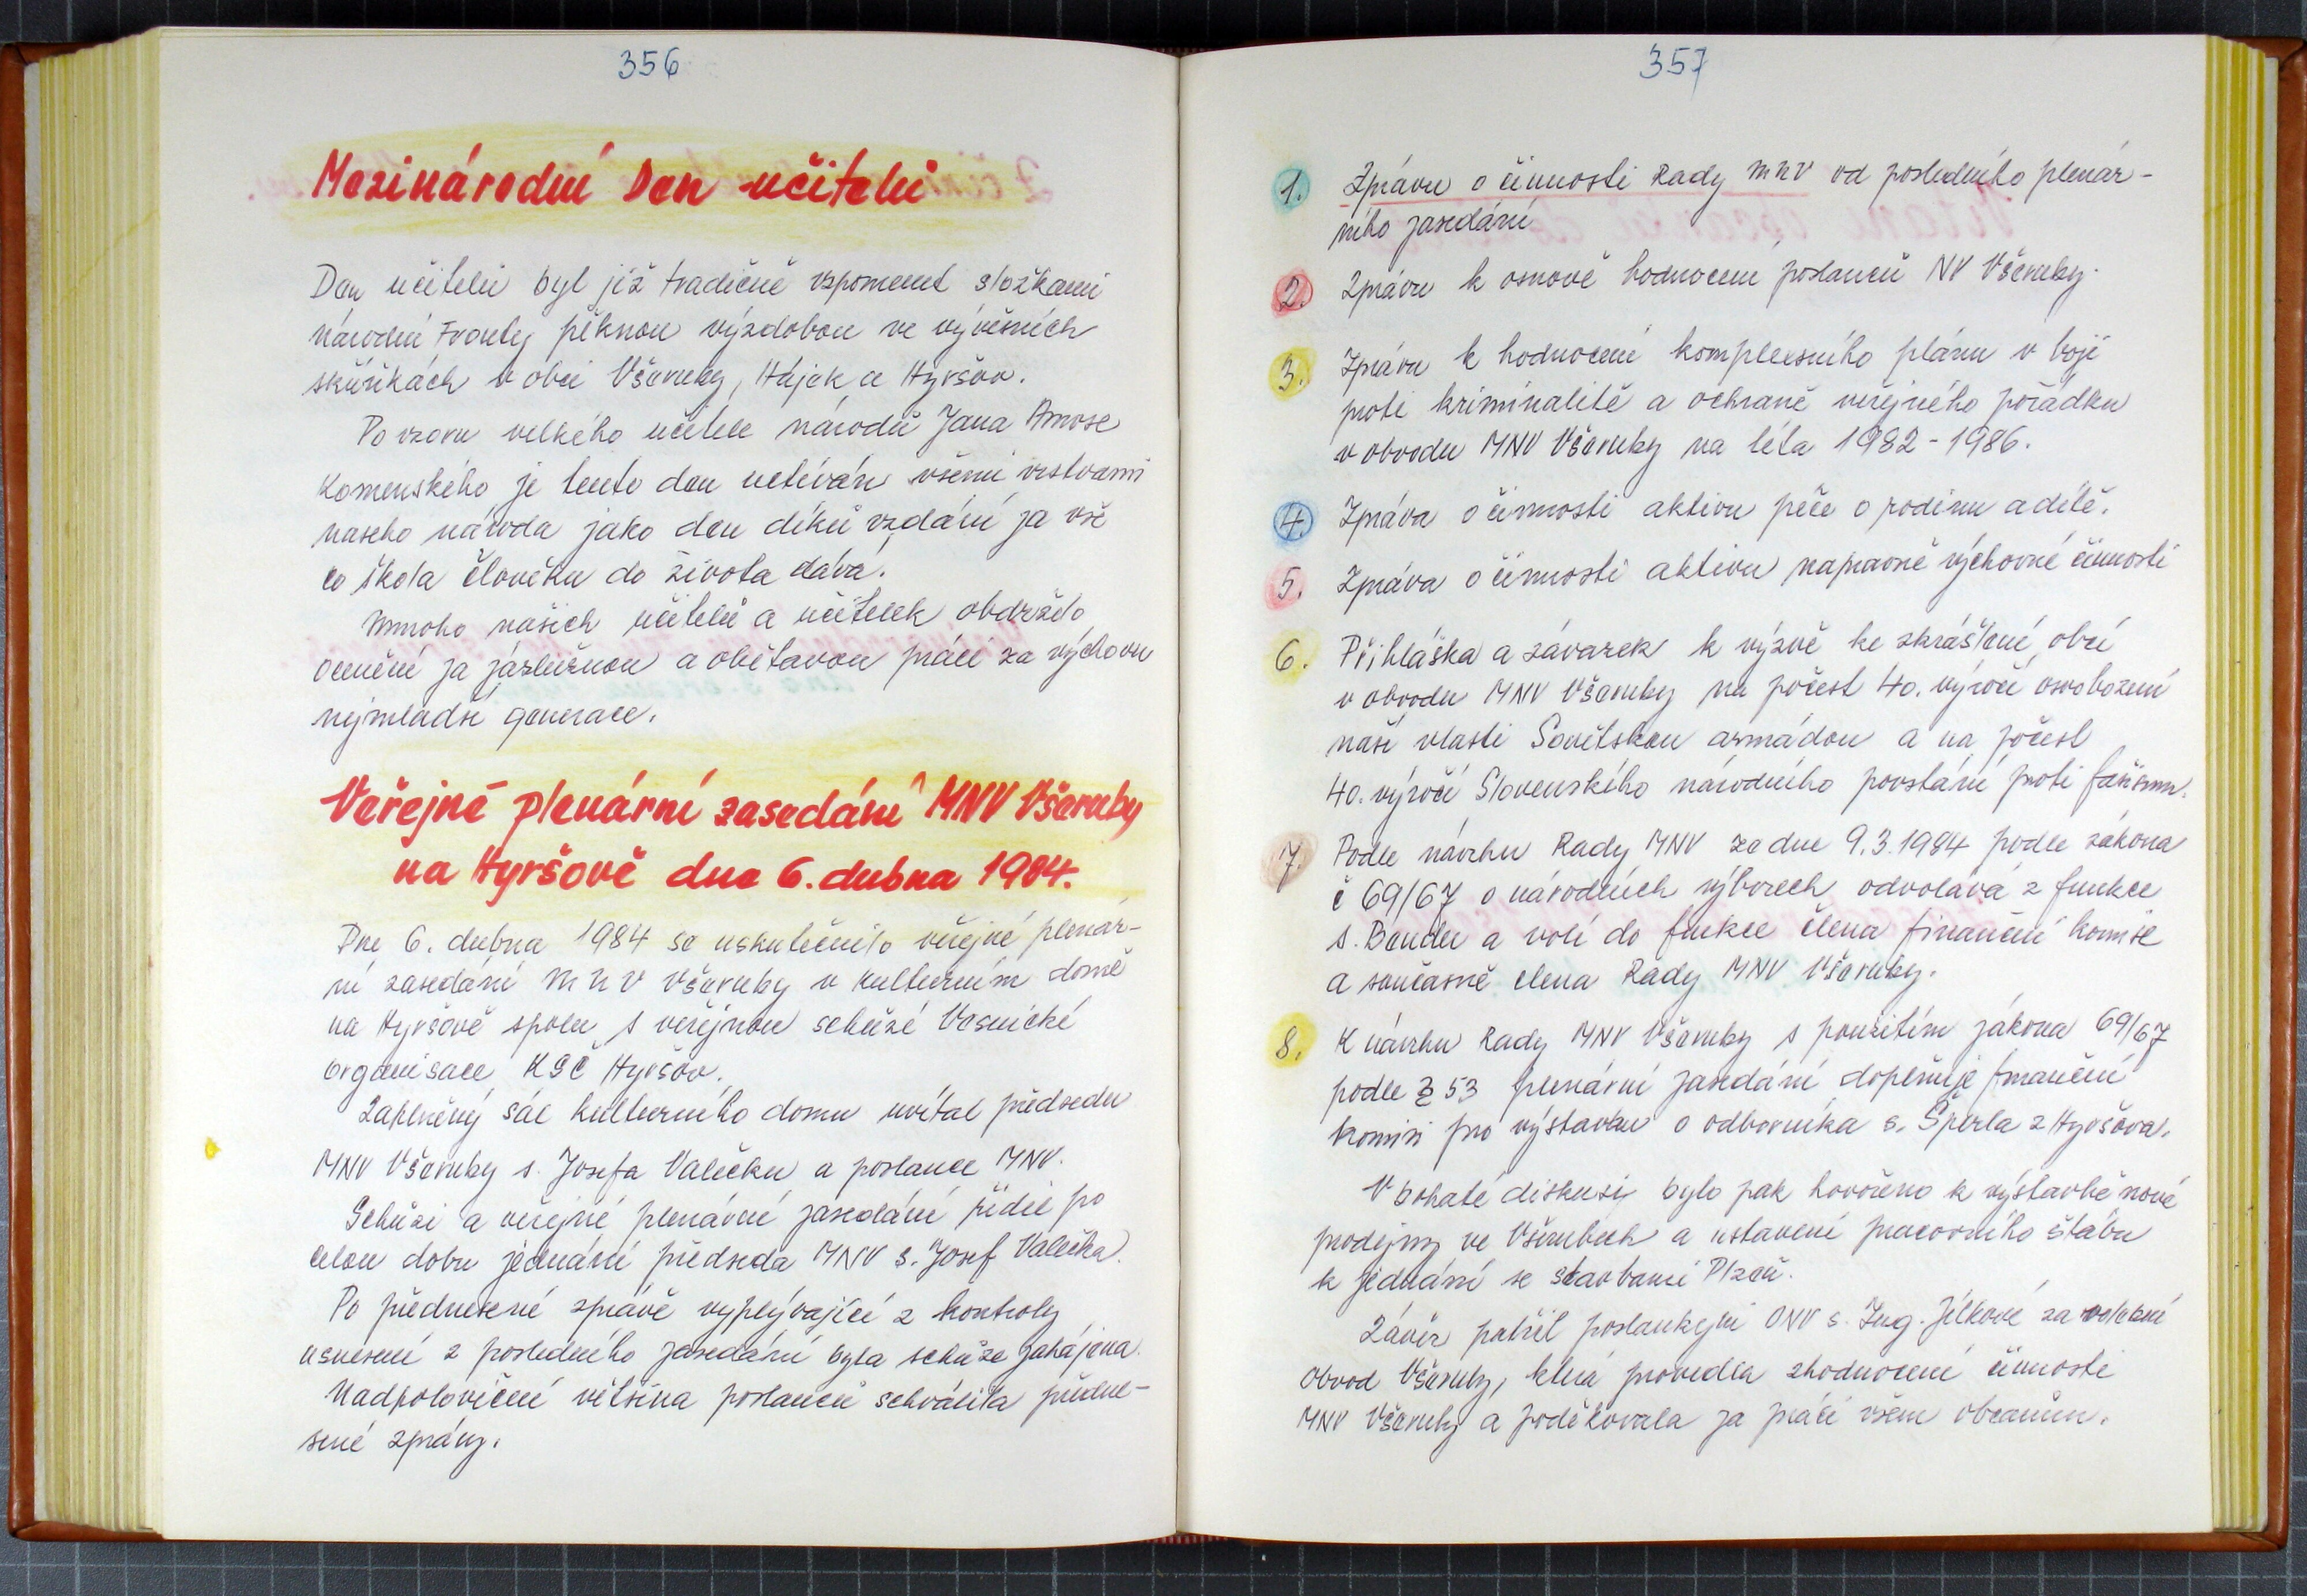 356
Mezinárodní Den učitelů
Den učitelů byl již tradičně vzpomenut složkami
národní Fronty pěknou výzdobou ve vývěsních
skříňkách v obci Všeruby, Hájek a Hyršov.
Po vzoru velkého učitele národů Jana Amose
Komenského je tento den uctíván všemi vrstvami
našeho národa jako den díků vzdání za vše
co škola člověku do života dává.
Mnoho našich učitelů a učitelek obdrželo
ocenění za záslužnou a obětavou práci za výchovu
nejmladší generace.
Veřejné plenární zasedání MNV Všeruby
na Hyršově dne 6. dubna 1984.
Dne 6. dubna 1984 se uskutečnilo veřejné plenár-
ní zasedání MNV Všeruby v kulturním domě
na Hyršově spolu s veřejnou schůzí Vesnické
organisace KSČ Hyršov.
Zaplněný sál kulturního domu uvítal předsedu
MNV Všeruby s. Josefa Valečku a poslance MNV.
Schůzi a veřejné plenární zasedání řídil po
celou dobu jednání předseda MNV s. Josef Valečka.
Po přednesené zprávě vyplývající z kontroly
usnesení z posledního zasedání byla schůze zahájena.
Nadpoloviční většina poslanců schválila předne-
sené zprávy.
357
1. Zprávu o činnosti Rady MNV od posledního plenár-
ního zasedání
2. Zprávu k osnově hodnocení poslanců NV Všeruby.
3. Zprávu k hodnocení komplexního plánu v boji
proti kriminalitě a ochraně veřejného pořádku
v obvodu MNV Všeruby na léta 1982 - 1986.
4. Zpráva o činnosti aktivu péče o rodinu a dítě.
5. Zpráva o činnosti aktivu nápravně výchovné činnosti
6. Přihláška a závazek k výzvě ke zkrášlení obcí
v obvodu MNV Všeruby na počest 40. výročí osvobození
naší vlasti Sovětskou armádou a na počest
40. výročí Slovenského národního povstání proti fašismu.
7. Podle návrhu Rady MNV ze dne 9.3.1984 podle zákona
č 69/67 o národních výborech odvolává z funkce
s. Bendu a volí do funkce člena finanční komise
a současně člena Rady MNV Všeruby.
8. K návrhu Rady MNV Všeruby s použitím zákona 69/67
podle § 53 plenární zasedání doplňuje finanční
komisi pro výstavbu o odborníka s. Šperla z Hyršova.
V bohaté diskusi bylo pak hovořeno k výstavbě nové
prodejny ve Všerubech a ustavení pracovního štábu
k jednání se stavbami Plzeň.
Závěr patřil poslankyni ONV s. Ing. Jílkové za volební
obvod Všeruby, která provedla zhodnocení činnosti
MNV Všeruby a poděkovala za práci všem občanům.